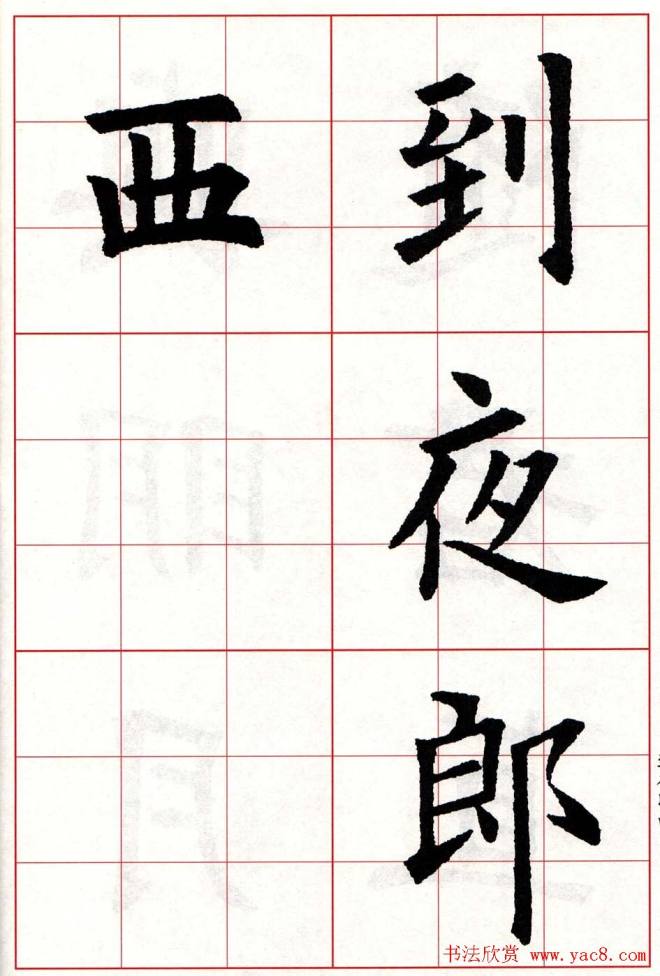 到夜郎
西
书法欣赏 www.yac8.com